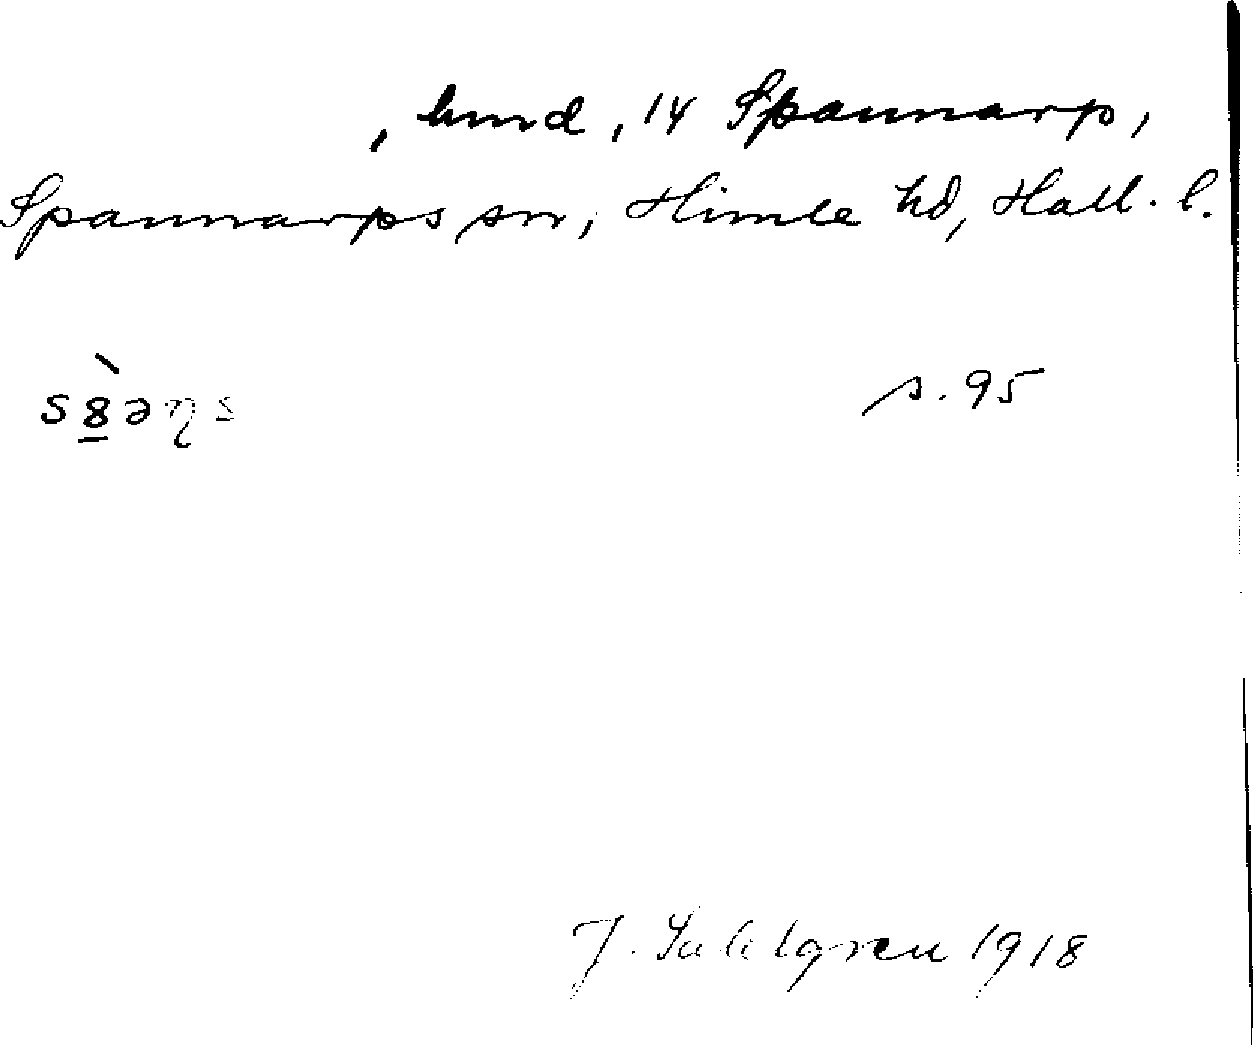 , lund, 14 Spannarp,
Spannarps sn, Himle hd, Hall. l.
s. 95
J. Sahlgren 1918